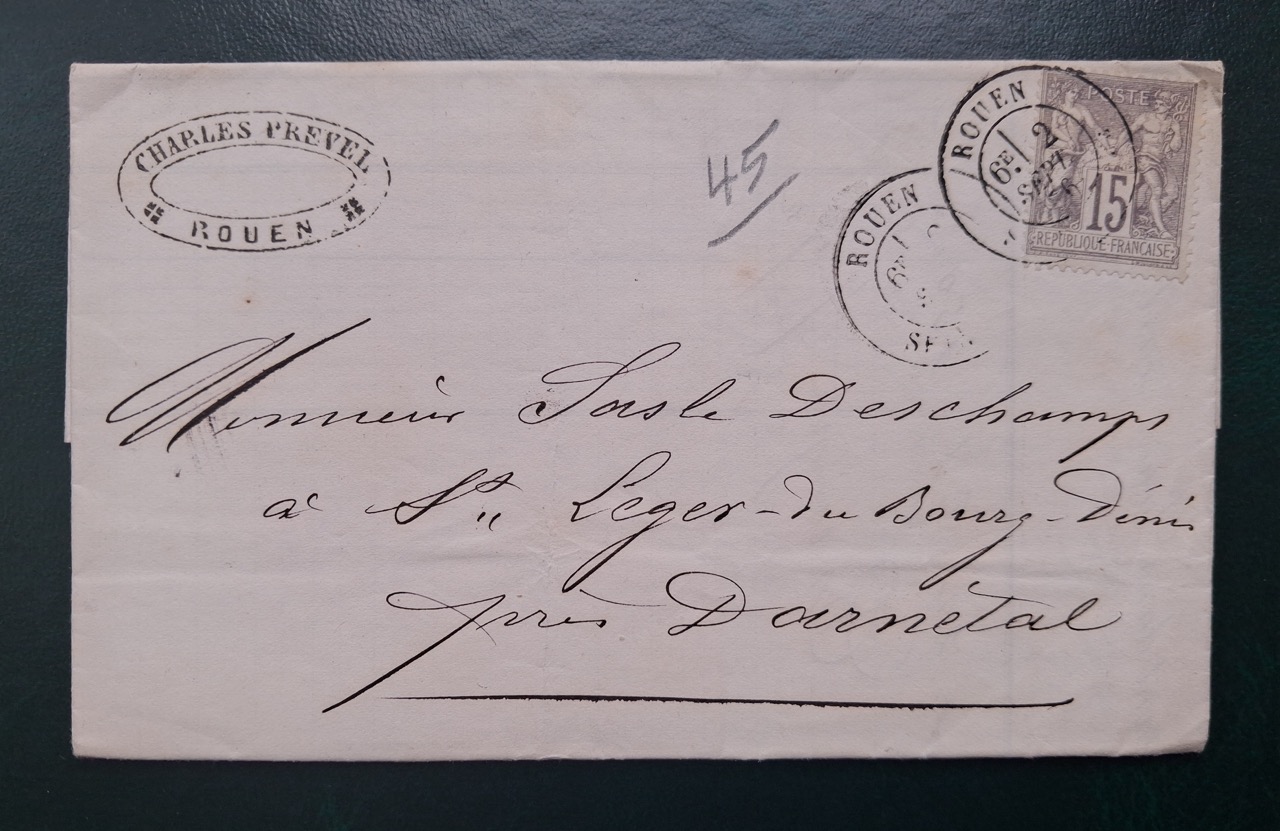 CHARLES PREVEL
ROUEN
45
ROUEN
6E
2
SEPT
POSTE
15
REPUBLIQUE FRANÇAISE
ROUEN
6E
Monsieur Sasle Deschamps
à St Léger-du Bourg-Dénis
près Darnétal